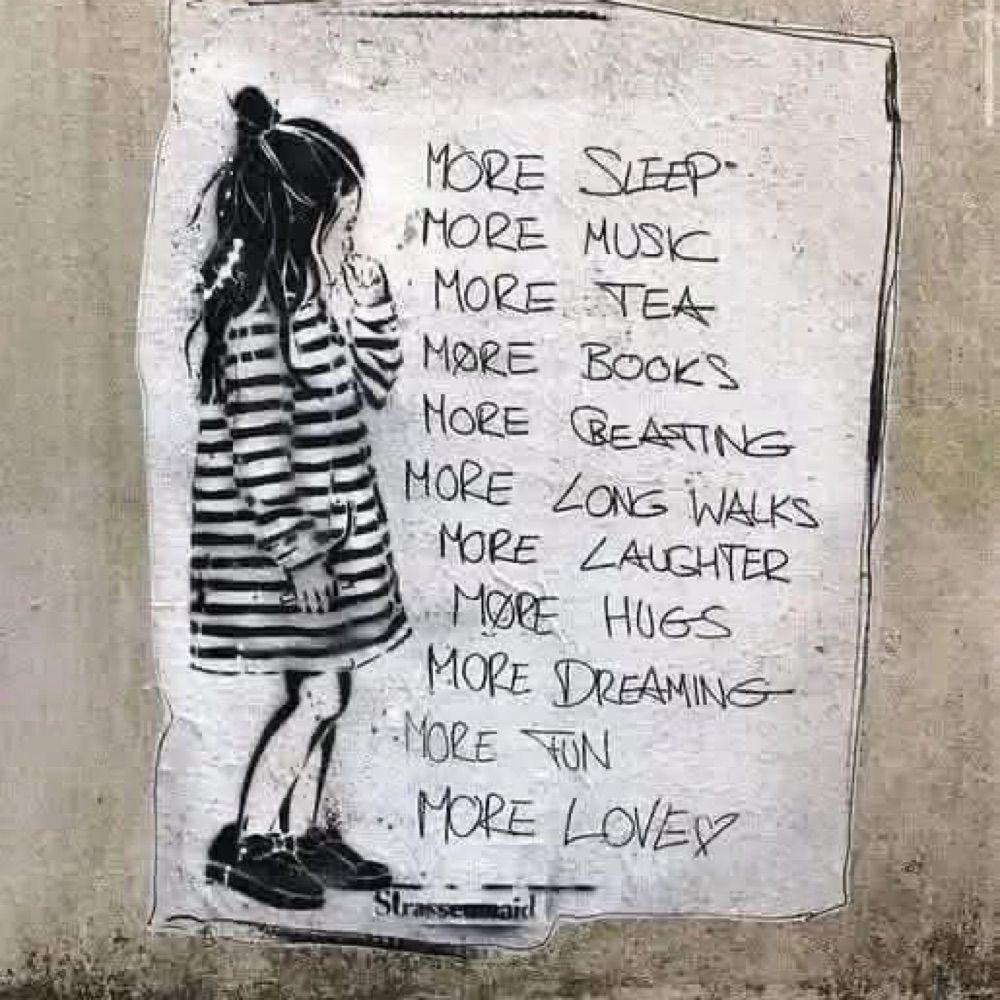 MORE SLEEP
MORE MUSIC
MORE TEA
MORE BOOKS
MORE CREATING
MORE LONG WALKS
MORE LAUGHTER
MORE HUGS
MORE DREAMING
MORE FUN
MORE LOVE♡
Strassenmaid